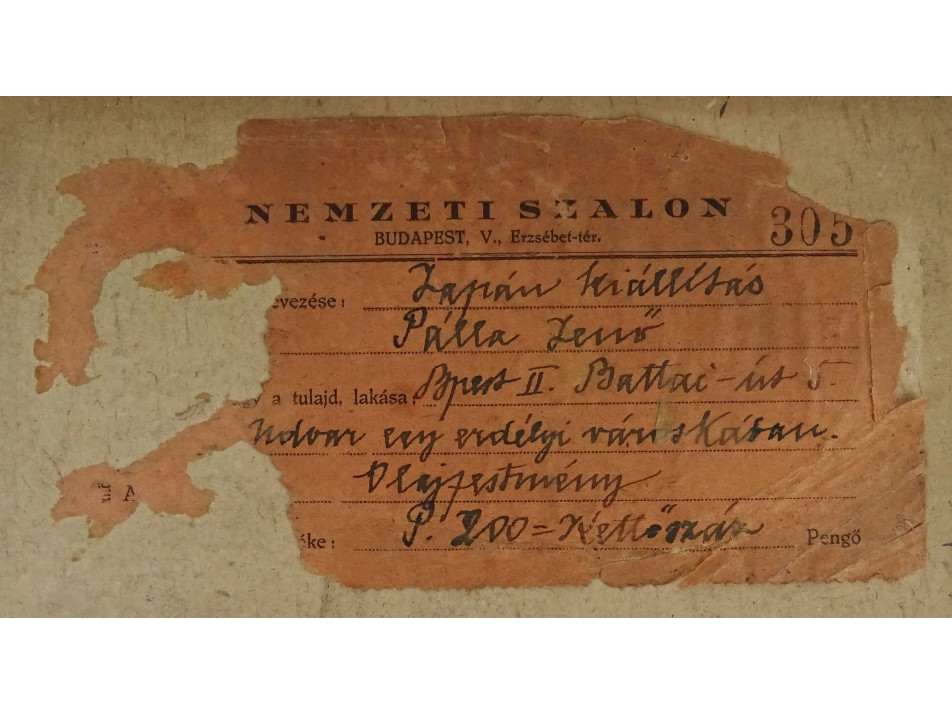 NEMZETI SZALON 305
BUDAPEST, V., Erzsébet-tér.
evezése: Japán kiállítás
Pálla Jenő
a tulajd, lakása: Bpest II. Battai-út 5.
Udvar egy erdélyi városkában.
A Olajfestmény
éke: P. 200 = Kettőszáz Pengő